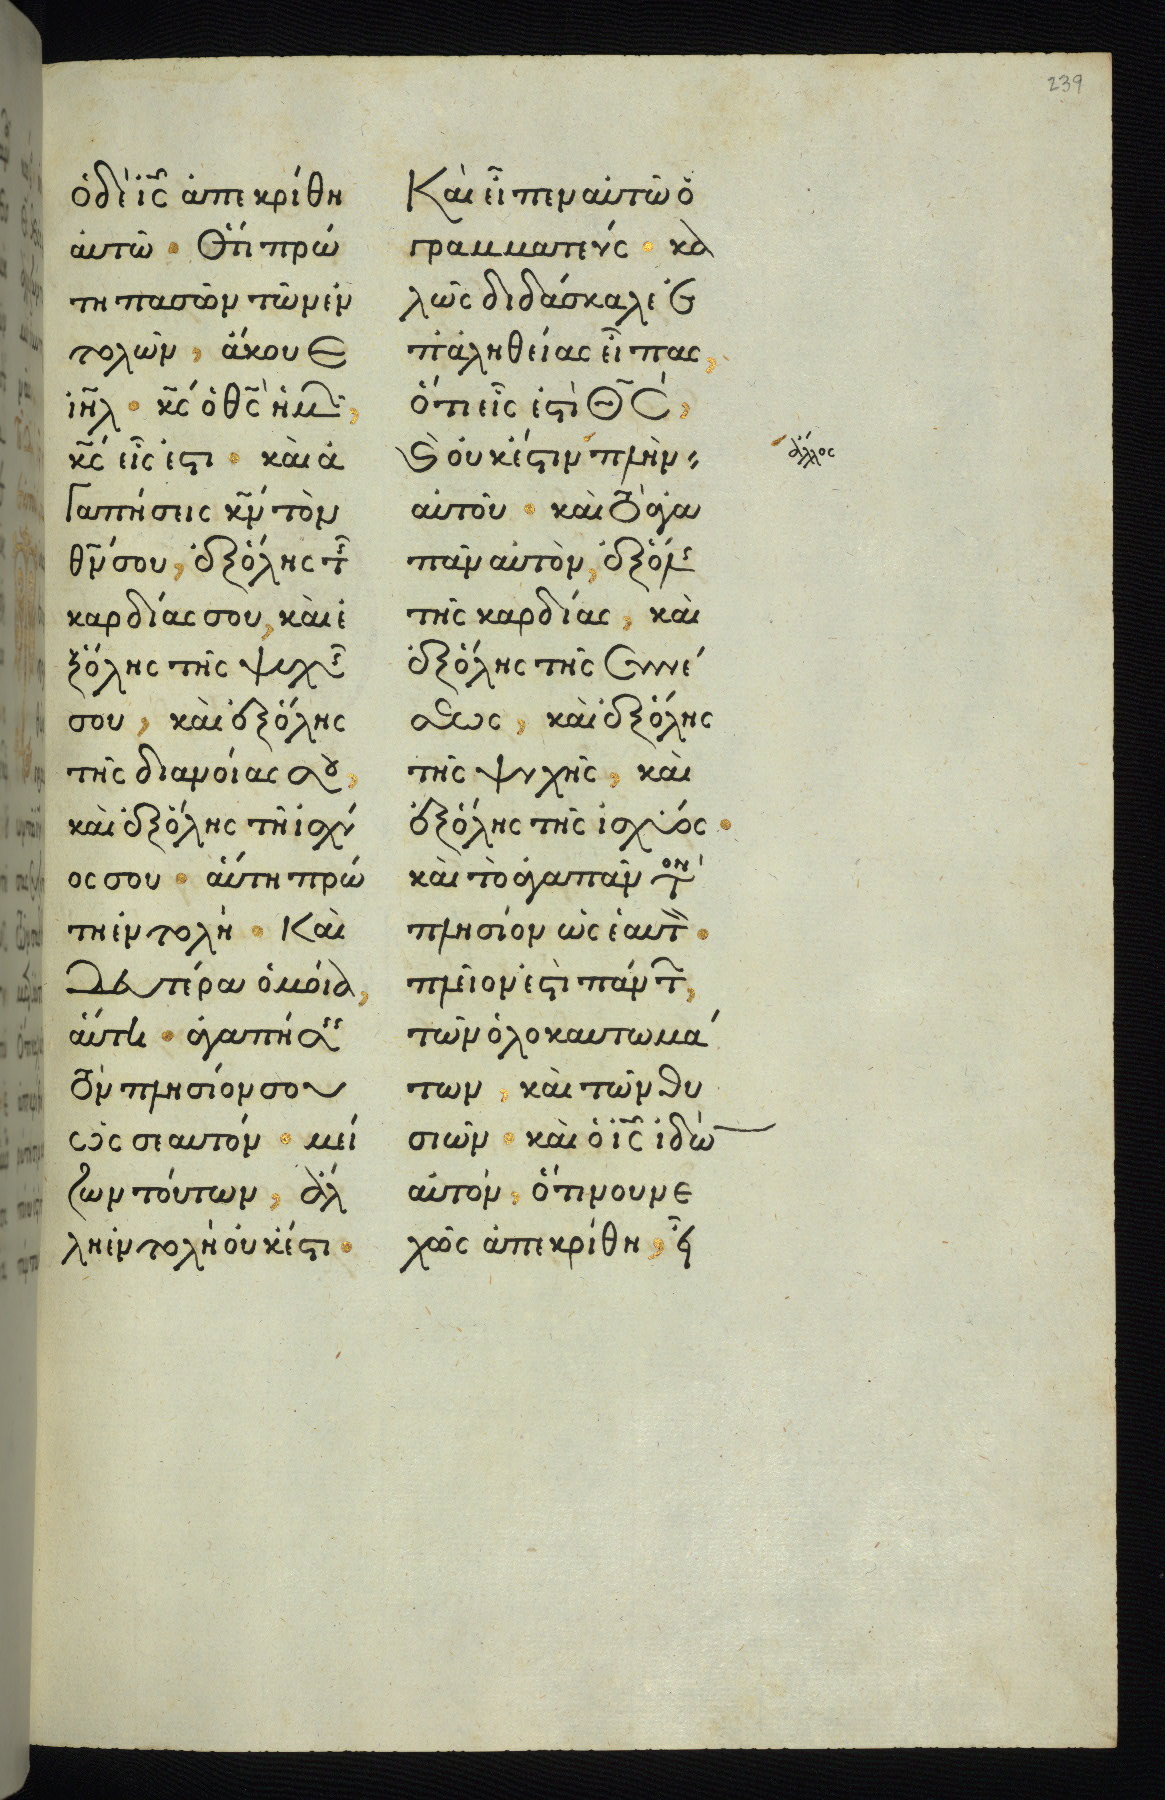 239
ὁ δὲ ἰς̃ ἀπεκρίθη
αὐτῶ · Ὅτι πρώ
τη πασῶν τῶν ἐν
τολῶν, ἄκουε
ἰηλ̃ · κς̃ ὁ θς̃ ἡμῶν,
κς̃ εἷς ἐστι · καὶ ἀ
γαπήσεις κν̃ τὸν
θν̃ σου, ἐξ ὅλης τῆς
καρδίας σου, καὶ ἐ
ξ ὅλης τῆς ψυχῆς
σου, καὶ ἐξ ὅλης
τῆς διανοίας σου,
καὶ ἐξ ὅλης τῆς ἰσχύ
ος σου · αὕτη πρώ
τη ἐντολή · Καὶ
δευτέρα ὁμοία,
αὕτη · ἀγαπήσεις
τὸν πλησίον σου
ὡς σεαυτόν · μεί
ζων τούτων, ἄλ
λη ἐντολὴ οὐκ ἔστι ·
Καὶ εἶπεν αὐτῶ ὁ
γραμματεύς · κα
λῶς διδάσκαλε ἐ
π' ἀληθείας εἶπας,
ὅτι εἷς ἐστὶ Θς̃,
καὶ οὐκ ἔστιν πλὴν
αὐτοῦ · καὶ τὸ ἀγα
πᾶν αὐτὸν, ἐξ ὅλης
τῆς καρδίας, καὶ
ἐξ ὅλης τῆς συνέ
σεως, καὶ ἐξ ὅλης
τῆς ψυχῆς, καὶ
ἐξ ὅλης τῆς ἰσχύος ·
καὶ τὸ ἀγαπᾶν τὸν
πλησίον ὡς ἑαυτὸν ·
πλεῖον ἐστὶ πάντων,
τῶν ὁλοκαυτωμά
των, καὶ τῶν θυ
σιῶν · καὶ ὁ ἰς̃ ἰδὼν
αὐτόν, ὅτι νουνε
χῶς ἀπεκρίθη, εἶ
ἄλλος